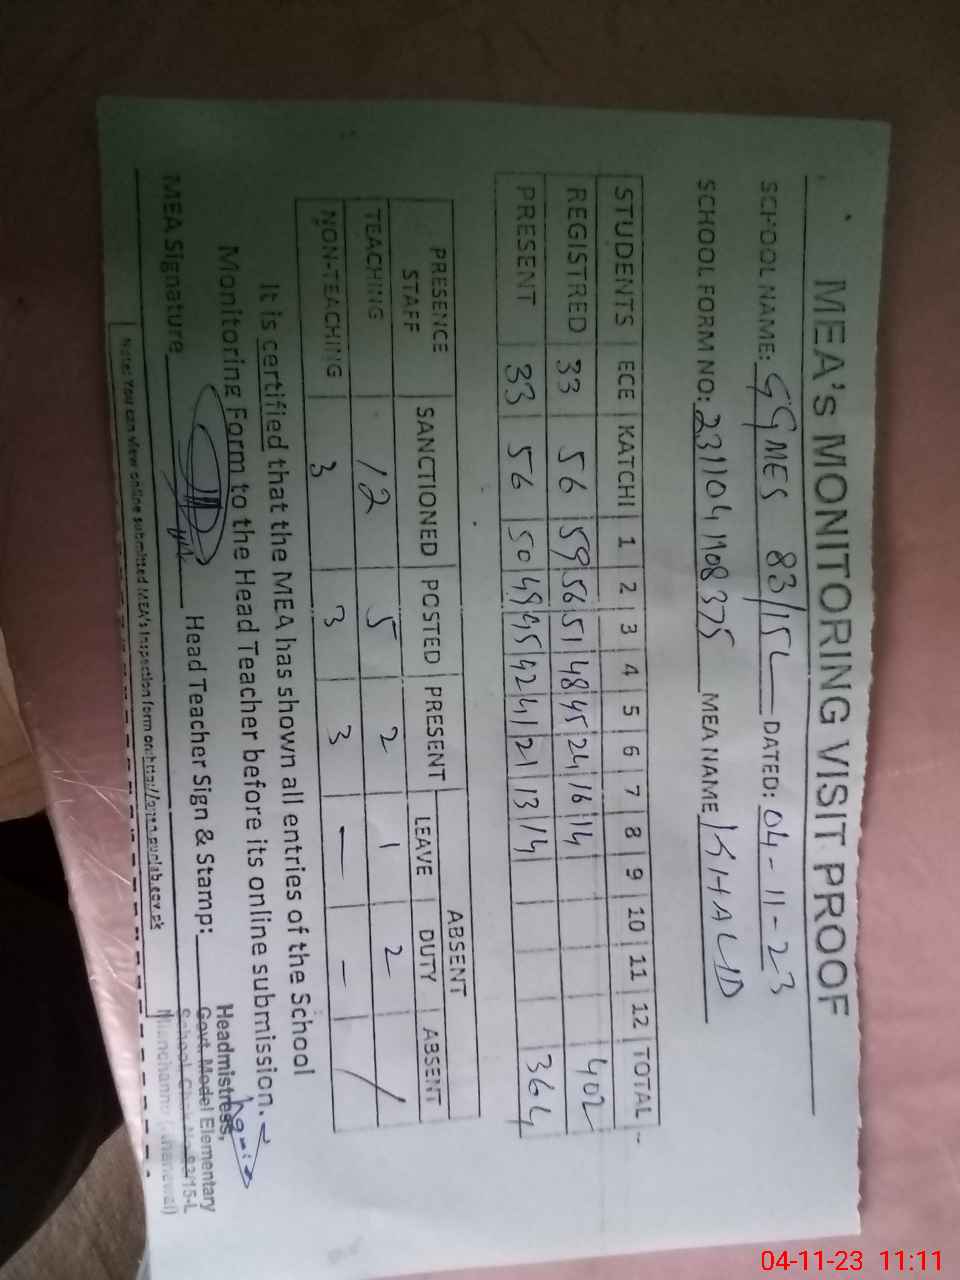 MEA's MONITORING VISIT PROOF
SCHOOL NAME: GGMES 83/15L DATED: 04-11-23
SCHOOL FORM NO: 2311041108375 MEA NAME KHALID
STUDENTS ECE KATCHI 1 2 3 4 5 6 7 8 9 10 11 12 TOTAL
REGISTRED 33 56 59 56 51 48 45 24 16 14 402
PRESENT 33 56 50 49 45 42 41 21 13 14 364
PRESENCE STAFF SANCTIONED POSTED PRESENT ABSENT
LEAVE DUTY ABSENT
TEACHING 12 5 2 1 2 /
NON-TEACHING 3 3 3 — —
It is certified that the MEA has shown all entries of the School
Monitoring Form to the Head Teacher before its online submission.
MEA Signature Head Teacher Sign & Stamp:
Headmistress,
Govt. Model Elementary
School Chak No 83/15-L
Note: You can view online submitted MEA's Inspection form on:
04-11-23 11:11